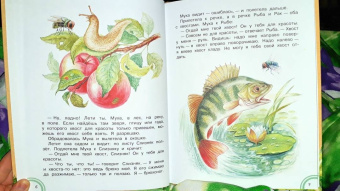 — Не, ладно! Лети ты, Муха, в лес, на реку,
в поле. Если найдёшь там зверя, птицу или гада,
у которого хвост для красоты только привешен, можешь
его себе взять.
Обрадовалась Муха и вылетела в окошко.
Летит она садом и видит: по листу Слизняк ползёт.
Подлетела Муха к Слизняку и кричит:
— Отдай мне твой хвост, Слизняк! Он у тебя для
красоты.
— Что ты, что ты! — говорит Слизняк. — У меня
и хвоста-то нет: это ведь брюхо моё. Я его сжимаю
да разжимаю, — только так и ползаю. Я — брюхоног.
Муха видит — ошиблась, — и полетела дальше.
Прилетела к речке, а в речке Рыба и Рак — оба
с хвостами. Муха к Рыбе:
— Отдай мне твой хвост! Он у тебя для красоты.
— Совсем не для красоты, — отвечает Рыба. — Хвост
у меня — руль. Видишь: надо мне направо повернуть
— я хвост вправо поворачиваю. Надо налево —
я влево хвост кладу. Не могу я тебе свой хвост
отдать.